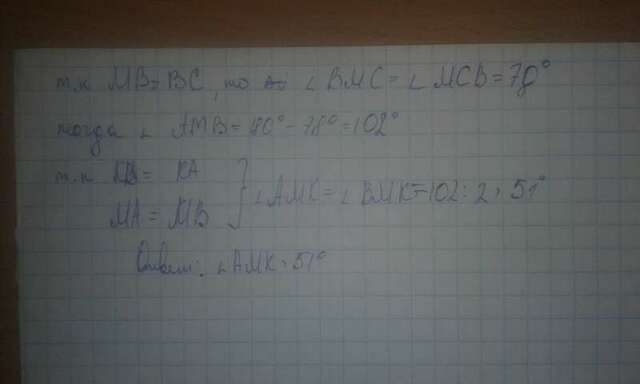 т.к MB=BC, то ∠BMC=∠MCB=78°
тогда ∠AMB=180°-78°=102°
т.к KB=KA
MA=MB } ∠AMK=∠BMK=102:2=51°
Ответ: ∠AMK=51°